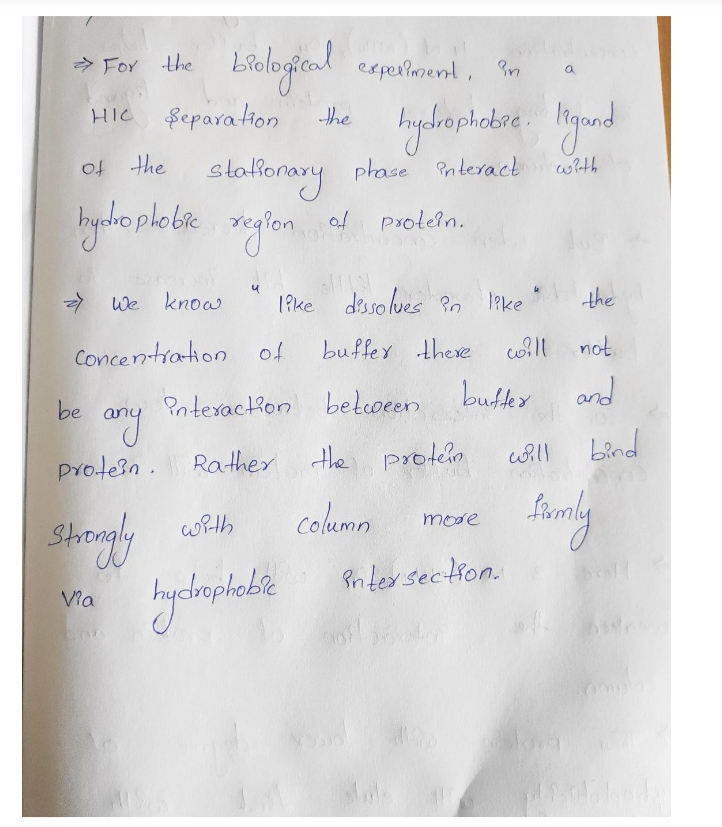 ⇒ For the biological experiment, in a
HIC separation the hydrophobic. ligand
of the stationary phase interact with
hydrophobic region of protein.
⇒ We know "like dissolves in like" the
concentration of buffer there will not
be any interaction between buffer and
protein. Rather the protein will bind
strongly with column more firmly
via hydrophobic intersection.